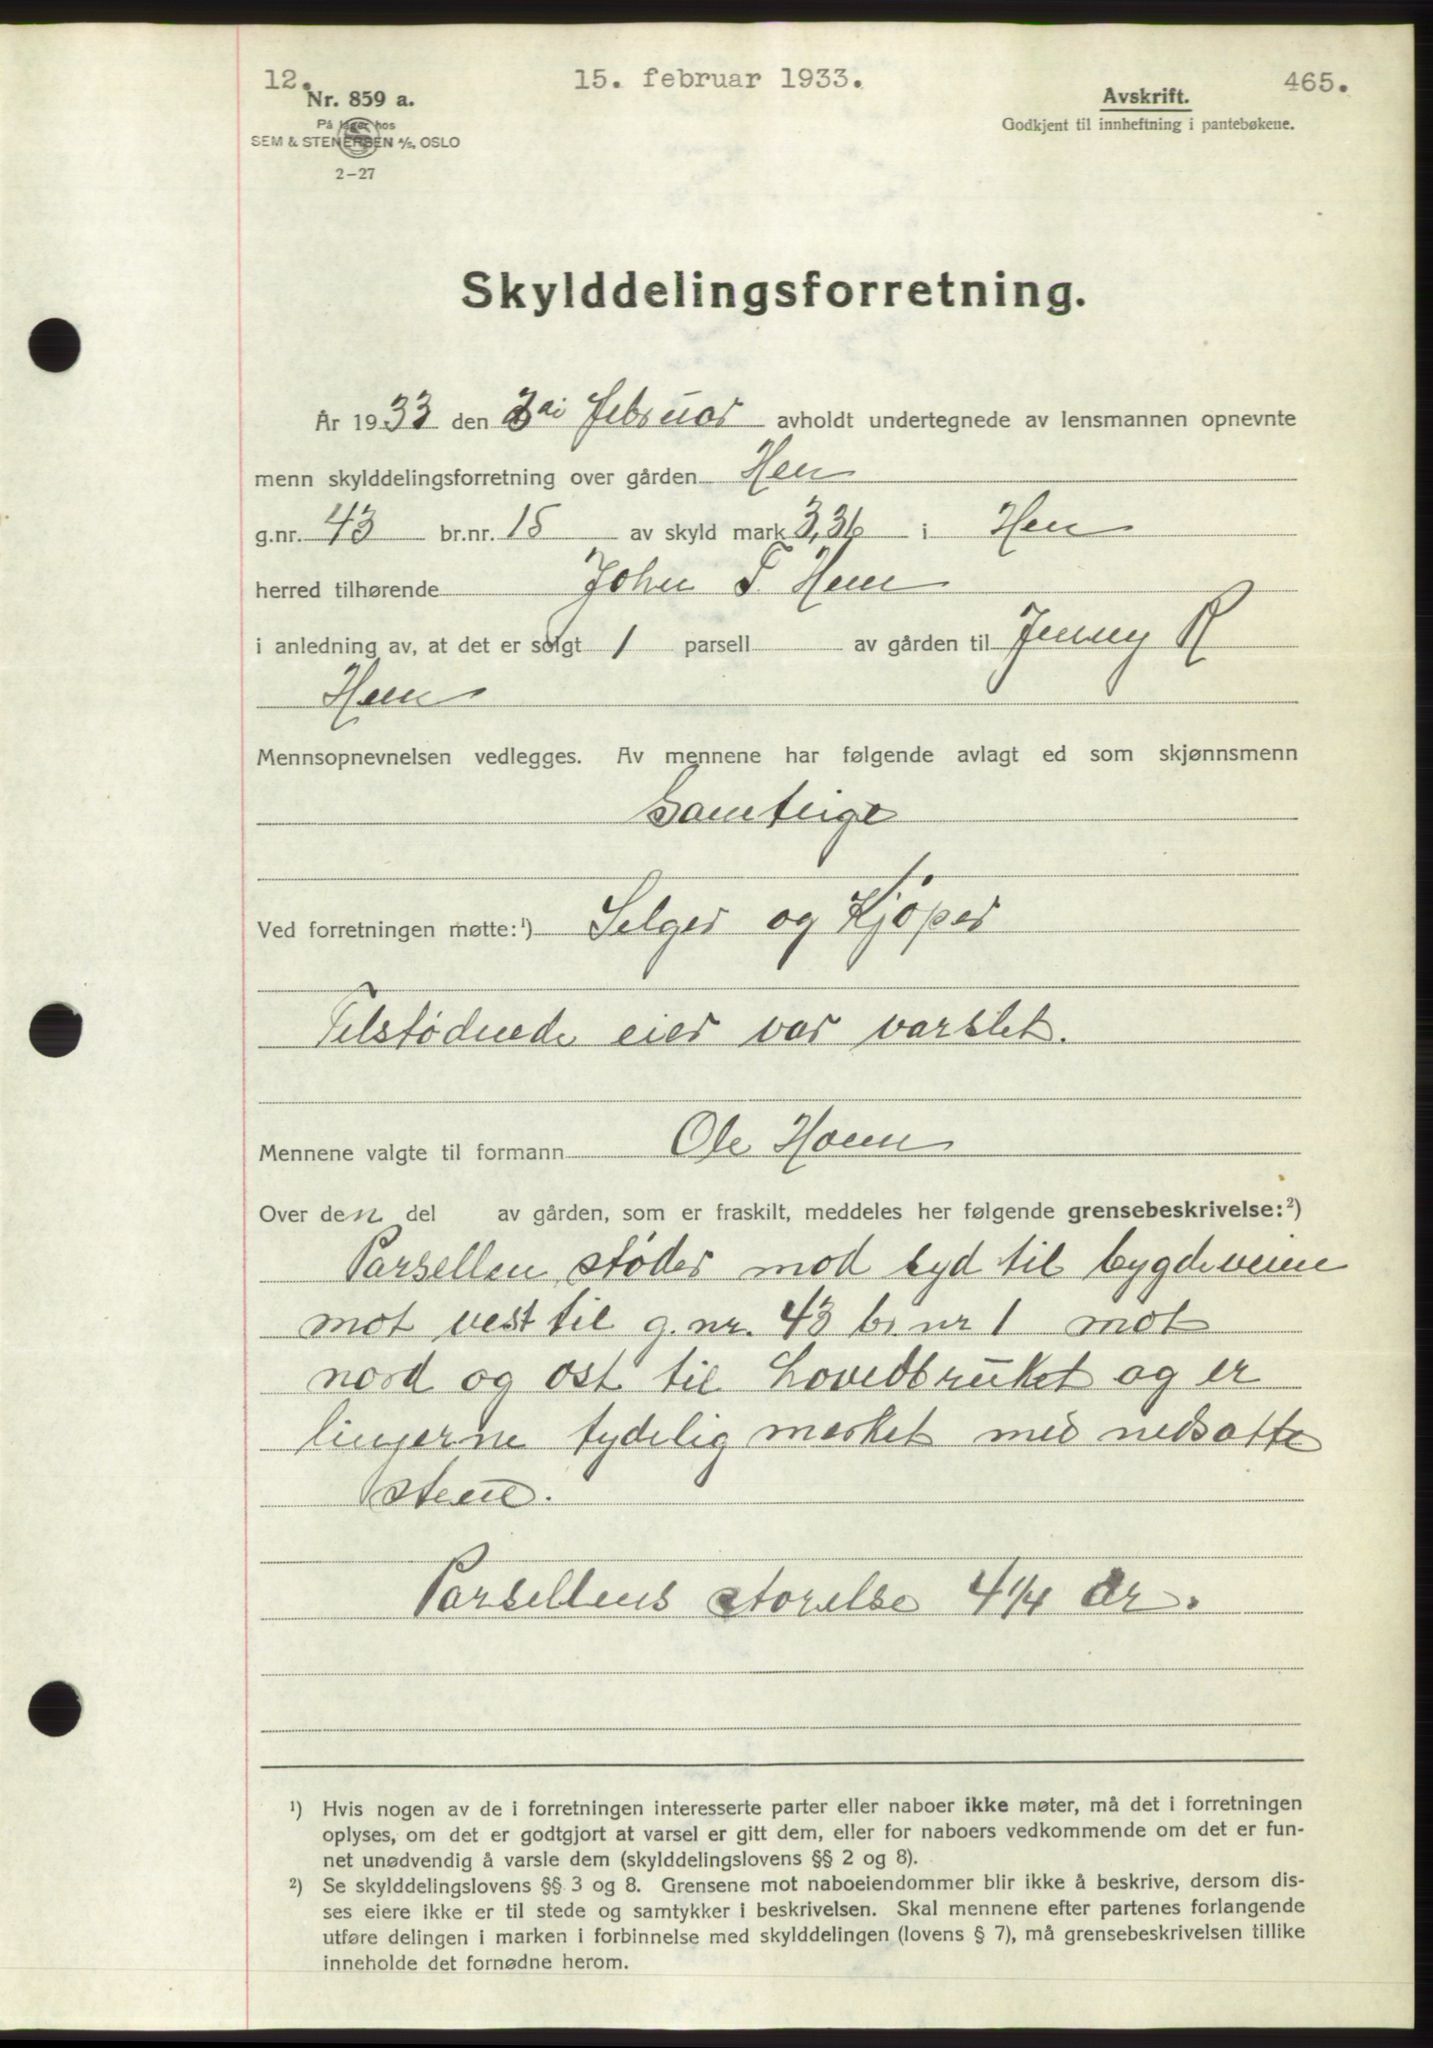 12. 15. februar 1933. 465.
Nr. 859 a. Avskrift.
På lager hos Godkjent til innheftning i pantebøkene.
SEM & STENERSEN A/S, OSLO
2-27
Skylddelingsforretning.
År 1933 den 3di februar avholdt undertegnede av lensmannen opnevnte
menn skylddelingsforretning over gården Hen
g.nr. 43 br.nr. 15 av skyld mark 3,36 i Hen
herred tilhørende John T. Hen
i anledning av, at det er solgt 1 parsell av gården til Jenny R
Hen
Mennsopnevnelsen vedlegges. Av mennene har følgende avlagt ed som skjønnsmenn
Samtlige
Ved forretningen møtte:¹) Selger og Kjøper
Tilstødnede eier var varslet.
Mennene valgte til formann Ole Hoem
Over den del av gården, som er fraskilt, meddeles her følgende grensebeskrivelse:²)
Parsellen støder mod syd til bygdeveien
mot vest til g.nr. 43 br nr 1 mot
nord og ost til Hovedbruket og er
linjerne tydelig merket med nedsatte
stene.
Parsellens storelse 4 1/4 ar.
¹) Hvis nogen av de i forretningen interesserte parter eller naboer ikke møter, må det i forretningen
oplyses, om det er godtgjort at varsel er gitt dem, eller for naboers vedkommende om det er fun-
net unødvendig å varsle dem (skylddelingslovens §§ 2 og 8).
²) Se skylddelingslovens §§ 3 og 8. Grensene mot naboeiendommer blir ikke å beskrive, dersom dis-
ses eiere ikke er til stede og samtykker i beskrivelsen. Skal mennene efter partenes forlangende
utføre delingen i marken i forbinnelse med skylddelingen (lovens § 7), må grensebeskrivelsen tillike
inneholde det fornødne herom.